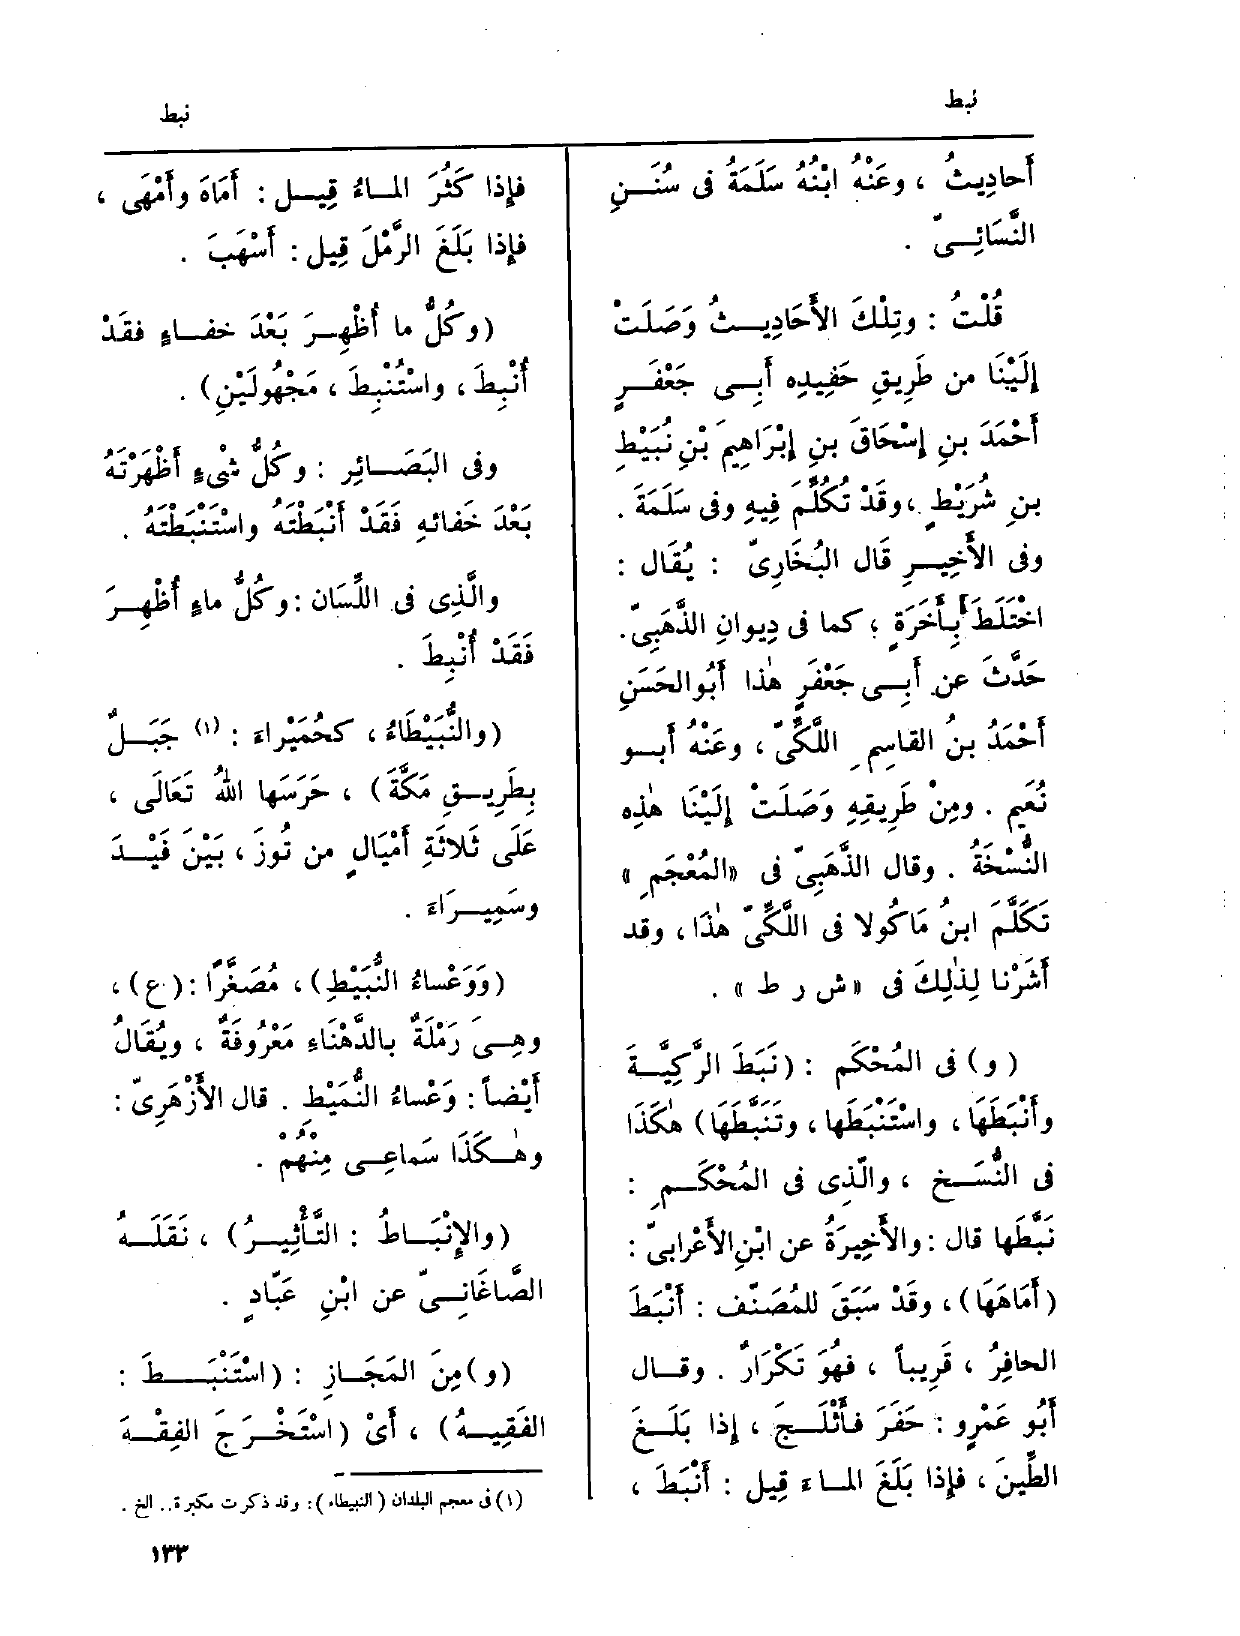 نبط
نبط
أَحادِيثُ ، وعَنْهُ ابْنُه سَلَمَةُ فى سُنَـنِ
النَّسَائِـىّ .
قُلْتُ : وتِلْكَ الأَحَادِيـثُ وَصَلَتْ
إِلَيْنَا من طَرِيقِ حَفِيدِه أَبِـى جَعْفَـرٍ
أَحْمَدَ بنِ إِسْحَاقَ بنِ إِبْرَاهِيمَ بْنِ نُبَيْطِ
بنِ شُرَيْطٍ ، وقَدْ تُكُلِّمَ فِيهِ وفى سَلَمَةَ .
وفى الأَخِيـرِ قَال البُخَارِىّ : يُقَال :
اخْتَلَطَ بِأَخَرَةٍ ؛ كما فى دِيوانِ الذَّهَبِىّ .
حَدَّثَ عن أَبِـى جَعْفَرٍ هٰذا أَبُو الحَسَنِ
أَحْمَدُ بنُ القاسِمِ اللُّكِّىّ ، وعَنْهُ أَبـو
نُعَيم . ومِنْ طَرِيقِهِ وَصَلَتْ إِلَيْنَا هٰذِه
النُّسْخَةُ . وقال الذَّهَبِىّ فى «المُعْجَمِ»
تَكَلَّمَ ابنُ مَاكُولا فى اللُّكِّىّ هٰذَا ، وقد
أَشَرْنا لِذٰلِكَ فى «ش ر ط» .
( و ) فى المُحْكَم : ( نَبَطَ الرَّكِيَّـةَ
وأَنْبَطَهَا ، واسْتَنْبَطَها ، وتَنَبَّطَهَا ) هٰكَذَا
فى النُّسَـخِ ، والَّذِى فى المُحْكَـمِ :
نَبَّطَها قال : والأَخِيرَةُ عن ابْنِ الأَعْرابىّ :
( أَمَاهَهَا ) ، وقَدْ سَبَقَ للمُصَنِّف : أَنْبَطَ
الحافِرُ ، قَرِيباً ، فهُوَ تَكْرَارٌ . وقـال
أَبُو عَمْرٍو : حَفَرَ فأَثْلَـجَ ، إِذا بَلَـغَ
الطِّينَ ، فإِذا بَلَغَ المـاءَ قِيل : أَنْبَطَ ،
فإِذا كَثُرَ المـاءُ قِيـل : أَمَاهَ وأَمْهَى ،
فإِذا بَلَغَ الرَّمْلَ قِيل : أَسْهَبَ .
( وكُلُّ ما أُظْهِـرَ بَعْدَ خفـاءٍ فقَدْ
أُنْبِطَ ، واسْتُنْبِطَ ، مَجْهُولَيْنِ ) .
وفى البَصَـائِر : وكُلُّ شَىْءٍ أَظْهَرْتَهُ
بَعْدَ خَفائهِ فَقَدْ أَنْبَطْتَهُ واسْتَنْبَطْتَهُ .
والَّذِى فى اللِّسَان : وكُلُّ ماءٍ أُظْهِـرَ
فَقَدْ أُنْبِطَ .
( والنُّبَيْطَاءُ ، كحُمَيْراءَ : (١) جَبَـلٌ
بِطَرِيـقِ مَكَّةَ ) ، حَرَسَها اللهُ تَعَالَى ،
عَلَى ثَلاثَةِ أَمْيَالٍ من تُوزَ ، بَيْنَ فَيْـدَ
وسَمِيـرَاءَ .
( وَوَعْساءُ النُّبَيْطِ ) ، مُصَغَّرًا : ( ع ) ،
وهِـىَ رَمْلَةٌ بالدَّهْنَاءِ مَعْرُوفَةٌ ، ويُقَالُ
أَيْضاً : وَعْساءُ النُّمَيْطِ . قال الأَزْهَرِىّ :
وهٰـكَذَا سَماعِـى مِنْهُمْ .
( والإِنْبَـاطُ : التَّأْثِيـرُ ) ، نَقَلَـهُ
الصَّاغَانِـىّ عن ابْنِ عَبّادٍ .
( و ) مِنَ المَجَـازِ : ( اسْتَنْبَـطَ :
الفَقِيـهُ ) ، أَىْ ( اسْتَخْـرَجَ الفِقْـهَ
(١) فى معجم البلدان ( النبيطاء ) : وقد ذكرت مكبرة . . الخ .
١٣٣